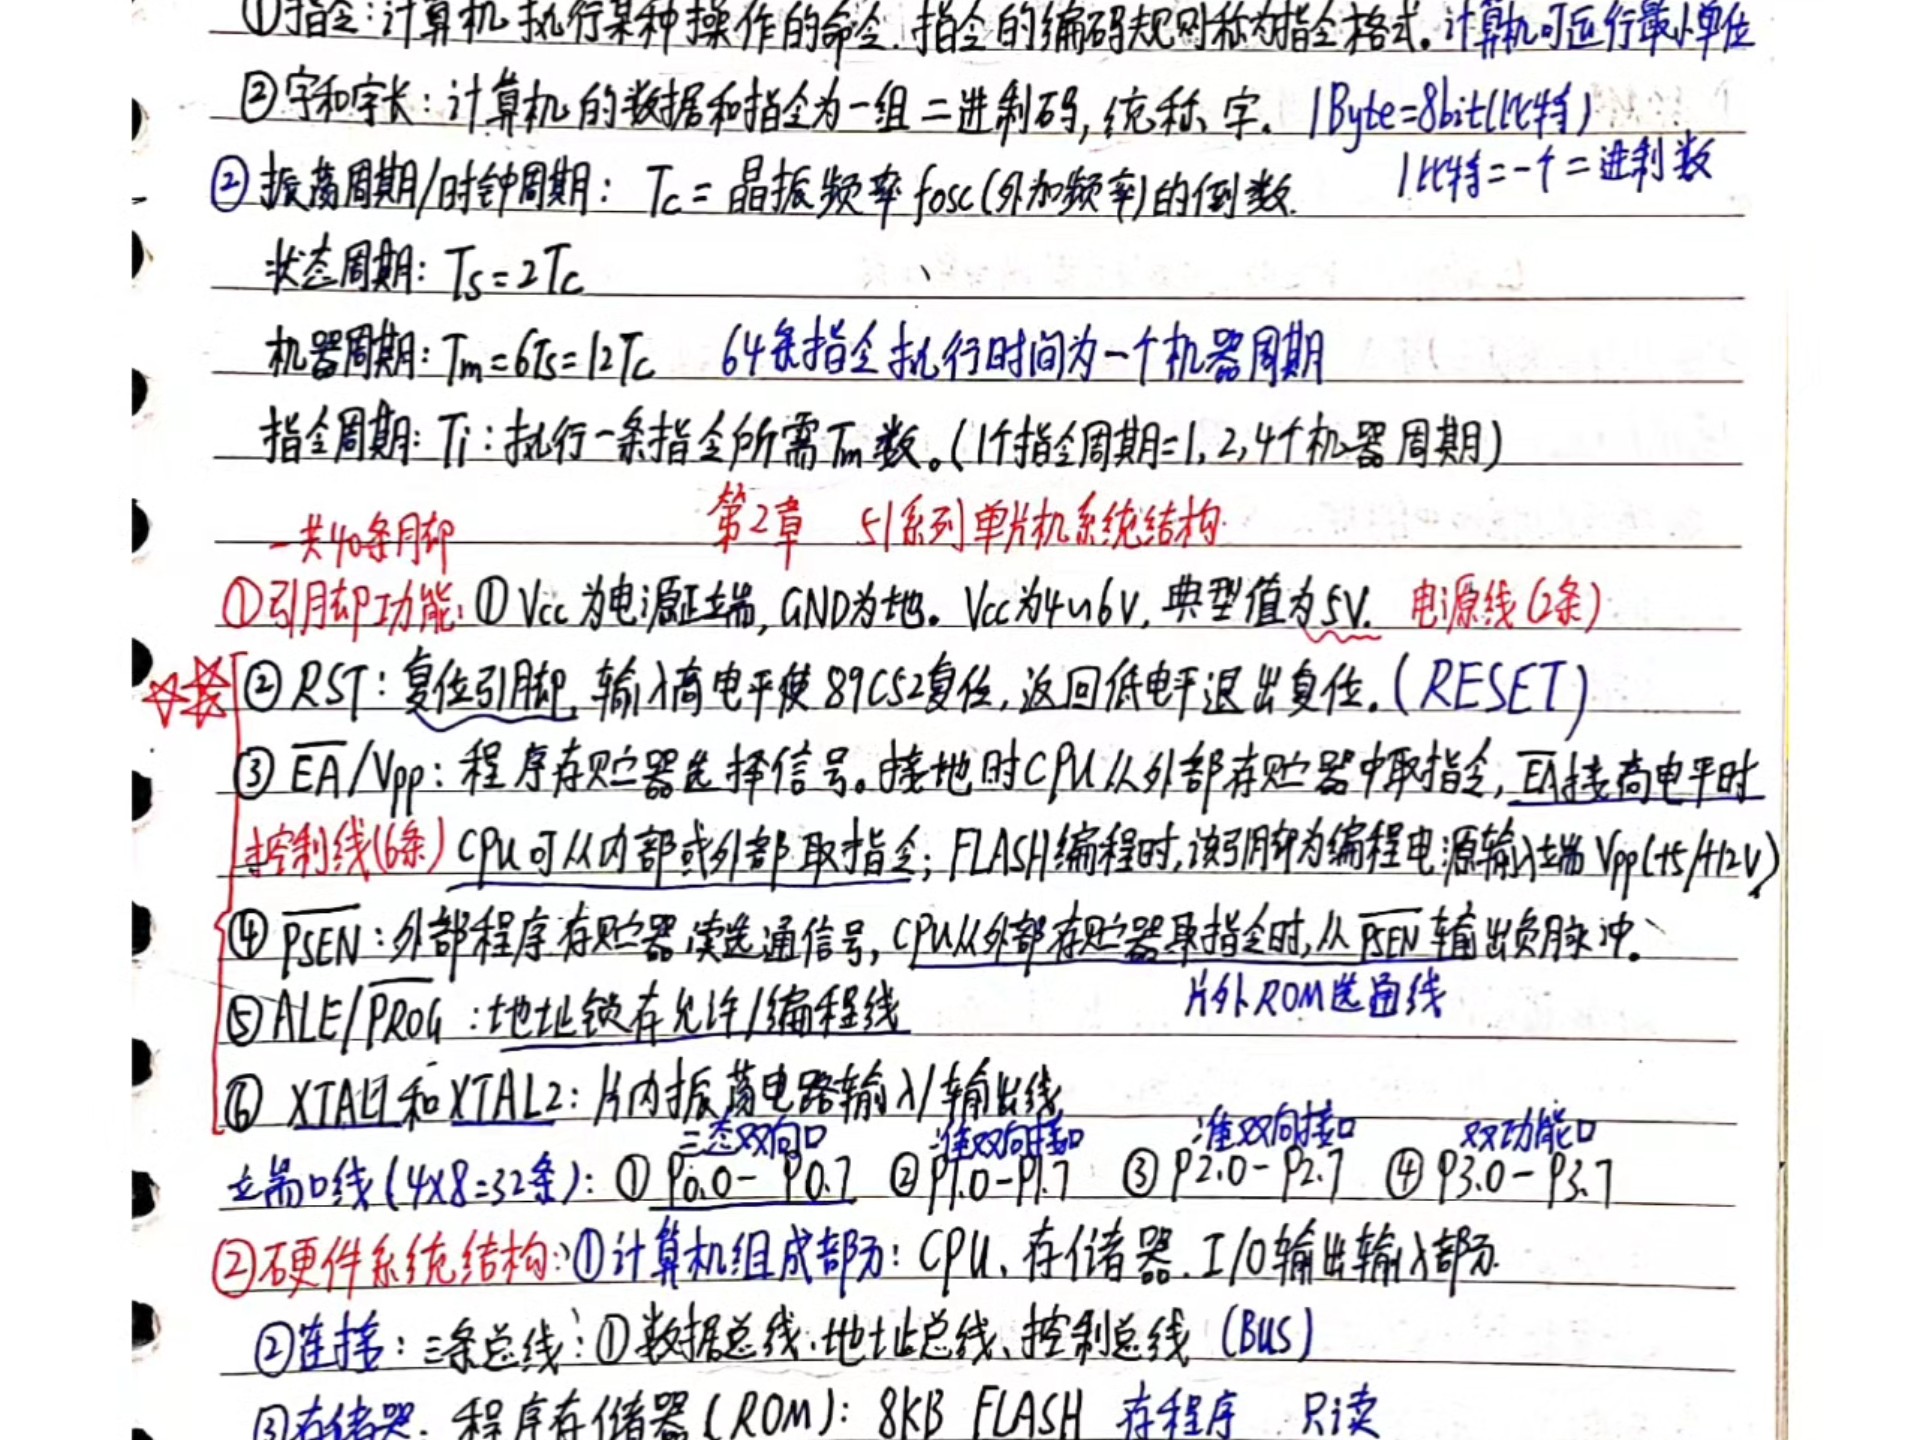 ①指令:计算机执行某种操作的命令.指令的编码规则称为指令格式。计算机可运行最小单位
②字和字长:计算机的数据和指令为一组二进制码,统称字. 1Byte=8bit(比特)
1比特=一个二进制数
②振荡周期/时钟周期: Tc=晶振频率fosc(外加频率)的倒数.
状态周期: Ts=2Tc
机器周期: Tm=6Ts=12Tc 64条指令执行时间为一个机器周期
指令周期: Ti:执行一条指令所需Tm数。(1个指令周期=1,2,4个机器周期)
一共40条脚 第2章 51系列单片机系统结构
①引脚功能: ①Vcc为电源正端, GND为地。Vcc为4~6V, 典型值为5V. 电源线(2条)
②RST:复位引脚,输入高电平使89C52复位,返回低电平退出复位。(RESET)
③E̅A̅/Vpp:程序存贮器选择信号。接地时CPU从外部存贮器中取指令,E̅A̅接高电平时
控制线(6条) CPU可从内部或外部取指令;FLASH编程时,该引脚为编程电源输入端Vpp(+5/+12V)
④P̅S̅E̅N̅:外部程序存贮器读选通信号,CPU从外部存贮器取指令时,从P̅S̅E̅N̅输出负脉冲。
片外ROM选通线
⑤ALE/P̅R̅O̅G̅:地址锁存允许/编程线
⑥XTAL1和XTAL2:片内振荡电路输入/输出线
三态双向口 准双向接口 准双向接口 双功能口
端口线(4x8=32条): ①P0.0-P0.7 ②P1.0-P1.7 ③P2.0-P2.7 ④P3.0-P3.7
②硬件系统结构: ①计算机组成部分: CPU、存储器.I/O输出输入部分.
②连接:三条总线:①数据总线.地址总线、控制总线 (BUS)
③存储器.程序存储器(ROM): 8KB FLASH 存程序 只读